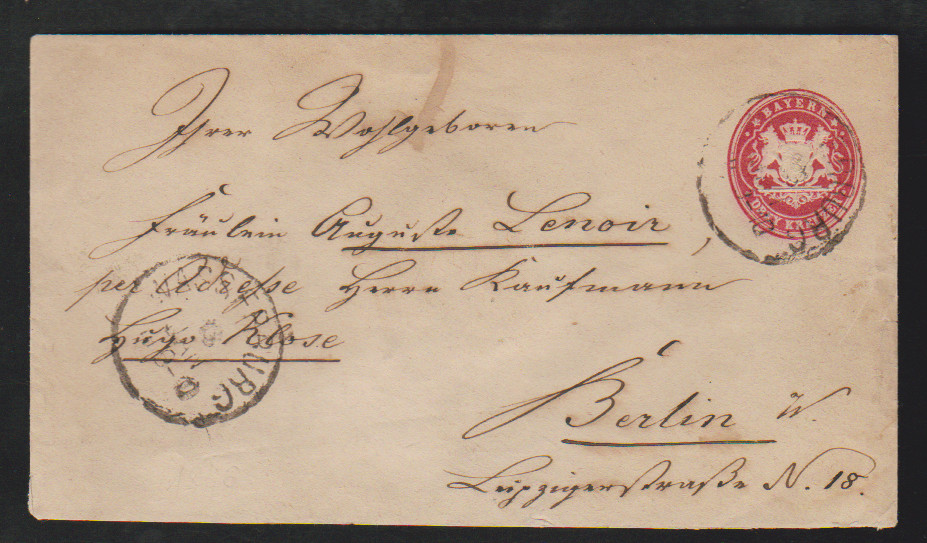 BAYERN
DREI KREUZER
Ihrer Wohlgeboren
Fräulein Auguste Lenoir,
per Adresse Herrn Kaufmann
Hugo Klose
Berlin W.
Leipzigerstraße N. 18.